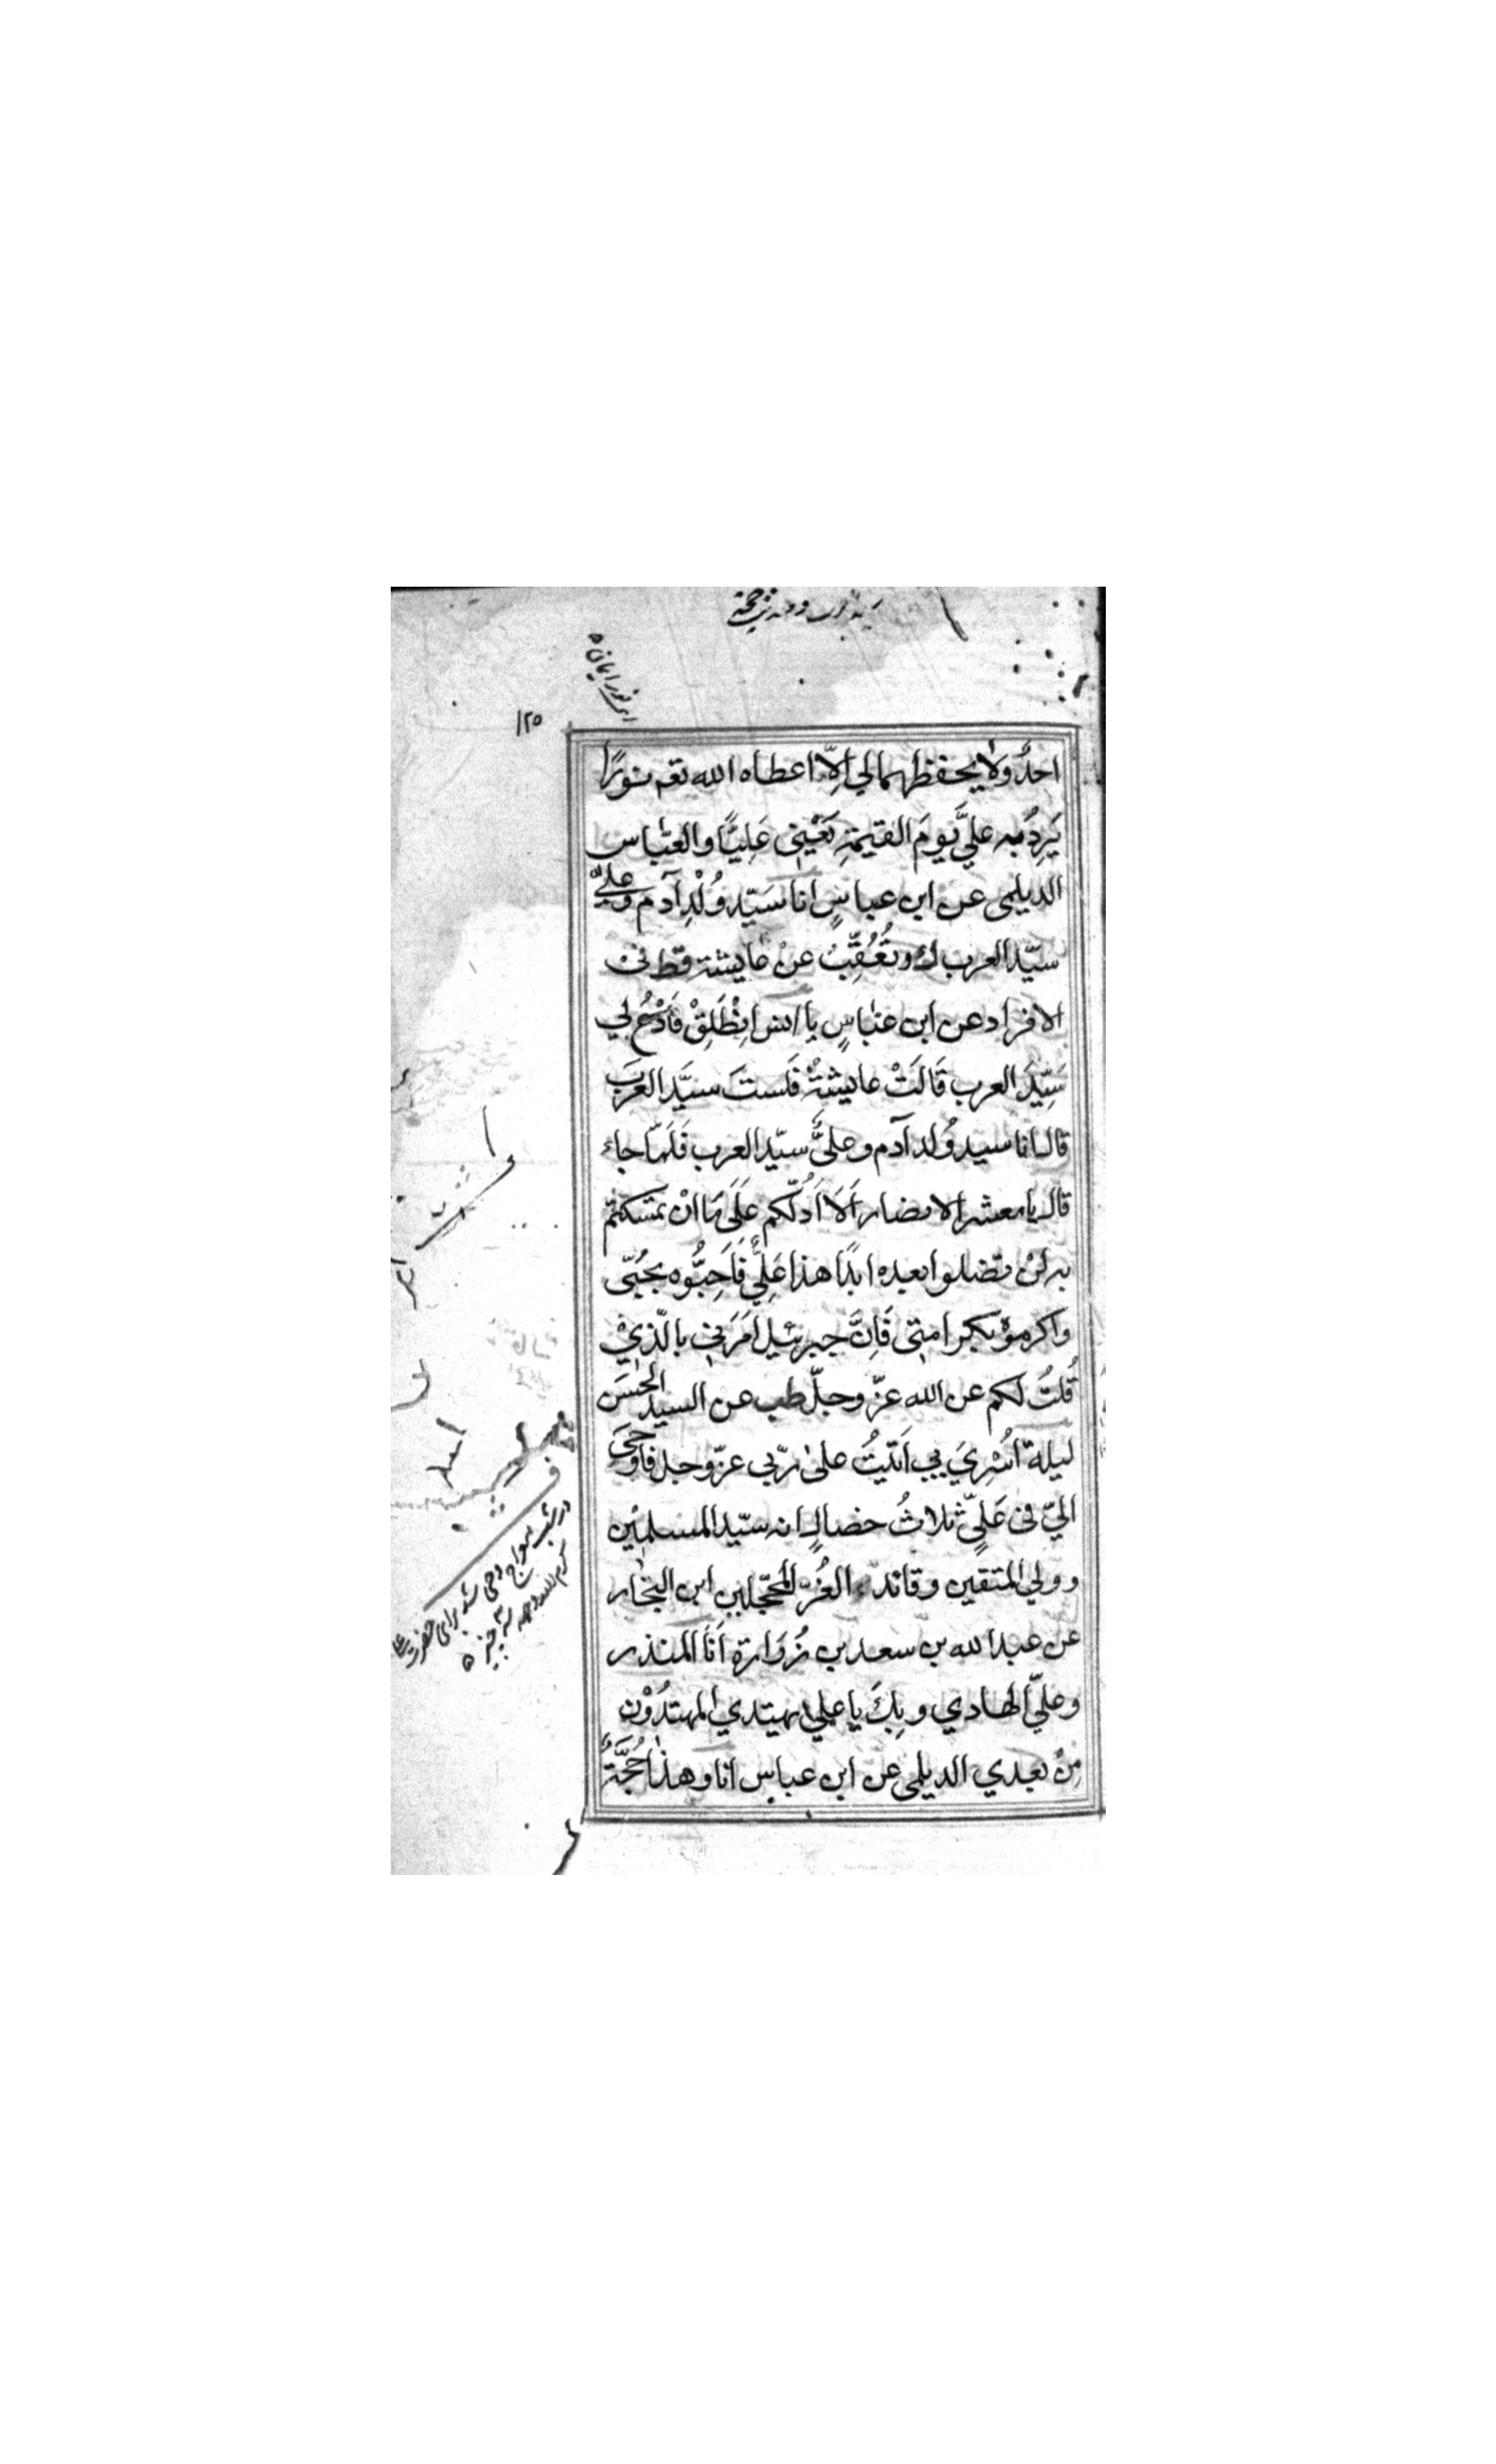 ١٢٥
احدٌ ولا يحفظهما لي اِلّا اعطاه الله تعہ نورًا
يَرِدُ به عليَّ يومَ القيٰمةِ يَعْنِی عَلِيًّا والعبّاس
الديلمی عن ابن عباسٍ انا سَيّد وُلْدِ آدم وعليٌّ
سيّد العرب ك وتُعُقِّبَ عن عايشة قط فی
الافراد عن ابن عبّاسٍ يا انس اِنْطَلِقْ فَادْعُ لي
سَيِّدَ العرب قَالَتْ عايشةُ فَلستَ سيَّد العرَب
قال انا سيد وُلد آدم وعليٌّ سيّد العرب فَلَمّا جاء
قال يا معشر الانصار اَلَا اَدُلّكم عَلَى مَا انْ تمسّكتم
به لنْ تضلوا بعده ابدًا هذا عَلِيٌّ فَاَحِبُّوه بحُبّی
واكرموْه بكرامتی فَاِنَّ جبرئيل اَمَرَنِی بالّذِيْ
قُلتُ لكم عن الله عزّ وجلّ طب عن السيد الحسَن
ليلة اُسْرِيَ بِي اَتَيتُ علیٰ ربّی عزّ وجل فاوْحَی
اليّ فی عَليٍّ ثلاثُ خصالٍ انه سيّد المسلمِيْن
وولي المتقين وقائد الغُرّ المحجّلين ابن النجّار
عن عبد الله بن سعد بن زُرَارة اَنَا المنذر
وعليّ الهادي وبِكَ يا علي يهتدي المهتدُوْن
مِنْ بعدي الديلمی عن ابن عباس انا وهذا حُجَّةٌ
در شب معراج وحی شد برای حضرت علی
كرم الله وجهه سه چيز ٥